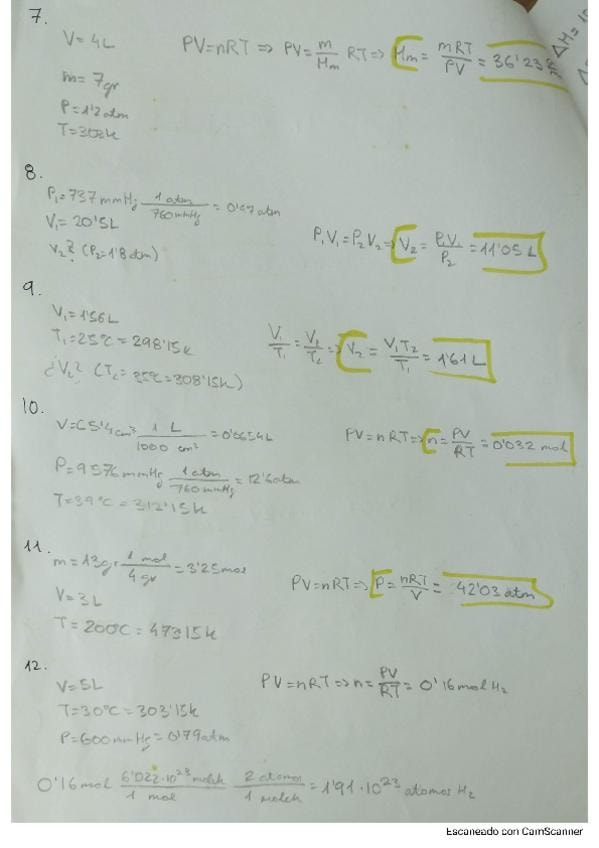 7.
V = 4L
PV=nRT => PV = m/Mm RT => Mm = mRT/PV = 36'23
ΔH =
m= 7gr
P= 1'2 atm
T= 303k
8.
P₁= 737 mmHg 1 atm/760 mmHg = 0'97 atm
V₁= 20'5L
V₂? (P₂= 1'8 atm)
P₁V₁ = P₂V₂ => V₂ = P₁V₁/P₂ = 11'05 L
9.
V₁= 1'56L
T₁= 25ºC = 298'15k
¿V₂? (T₂= 35ºC = 308'15k)
V₁/T₁ = V₂/T₂ => V₂ = V₁T₂/T₁ = 1'61 L
10.
V= 65'4 cm³ 1 L/1000 cm³ = 0'0654L
P= 9576 mmHg 1 atm/760 mmHg = 12'6 atm
T= 39ºC = 312'15k
PV = nRT => n = PV/RT = 0'032 mol
11.
m = 13gr 1 mol/4 gr = 3'25 mol
V= 3L
T = 200ºC = 473'15k
PV= nRT => P = nRT/V = 42'03 atm
12.
V= 5L
T= 30ºC = 303'15k
P= 600 mmHg = 0'79 atm
PV = nRT => n = PV/RT = 0'16 mol H₂
0'16 mol 6'022·10²³ molec/1 mol 2 atomos/1 molec = 1'91·10²³ atomos H₂
Escaneado con CamScanner